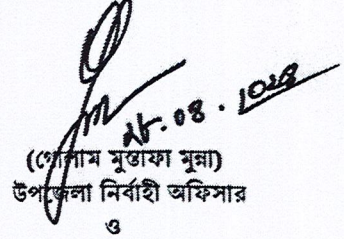 ২৮.০৪.২০২৪
(গোলাম মুস্তাফা মুন্না)
উপজেলা নির্বাহী অফিসার
ও